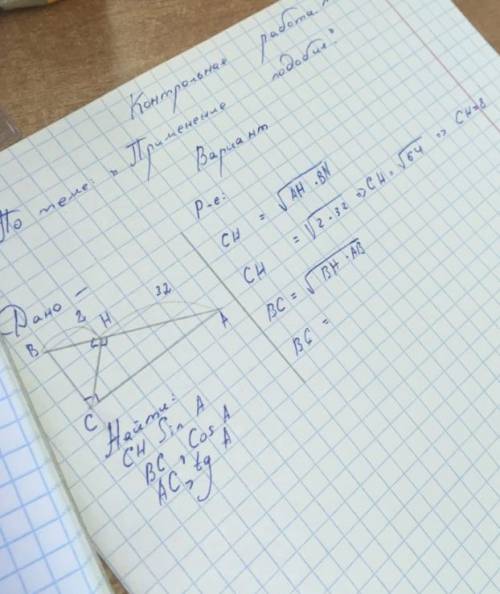 Контрольная работа
По теме: „Применение подобия"
Вариант
Дано -
2
H
32
A
B
C
Найти:
CH Sin A
BC, Cos A
AC, tg A
Р-е:
CH = √AH · BH
CH = √2·32 => CH = √64 => CH=8
BC = √BH · AB
BC =